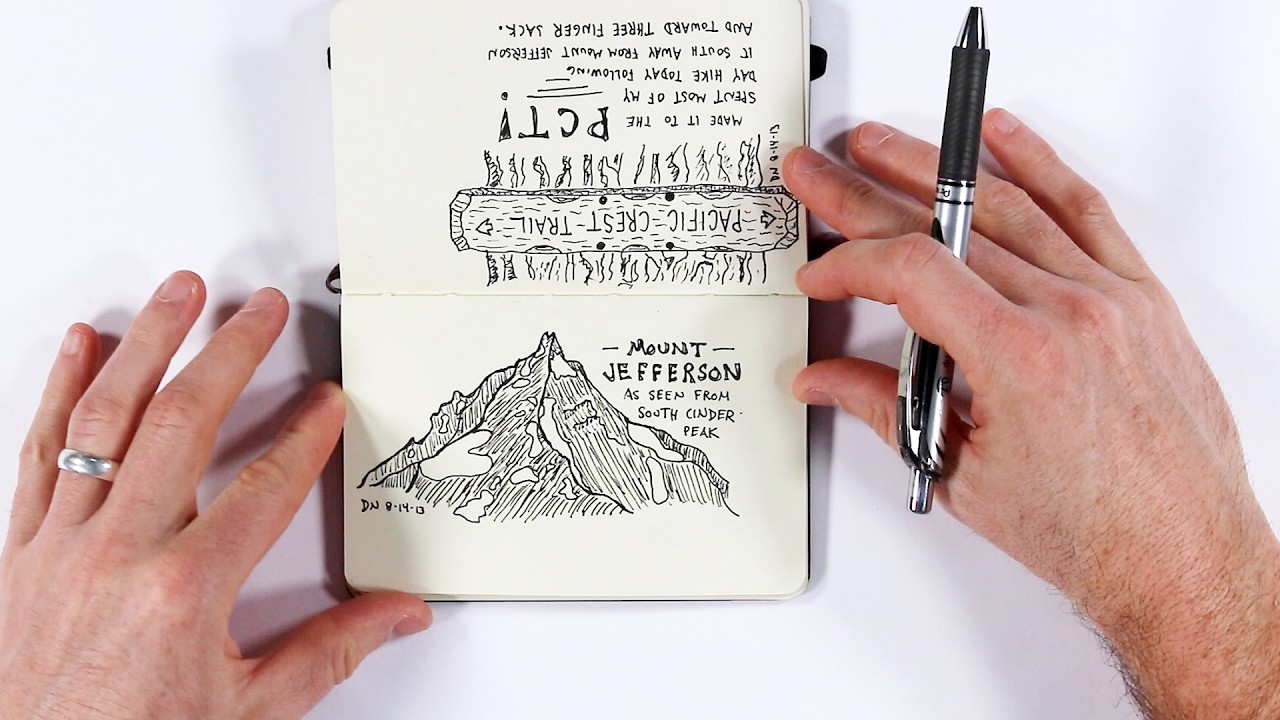 MADE IT TO THE PCT!
SPENT MOST OF MY
DAY HIKE TODAY FOLLOWING
IT SOUTH AWAY FROM MOUNT JEFFERSON
AND TOWARD THREE FINGER JACK.
PACIFIC-CREST-TRAIL
DN 8-14-13
— MOUNT —
JEFFERSON
AS SEEN FROM
SOUTH CINDER
PEAK
DN 8-14-13